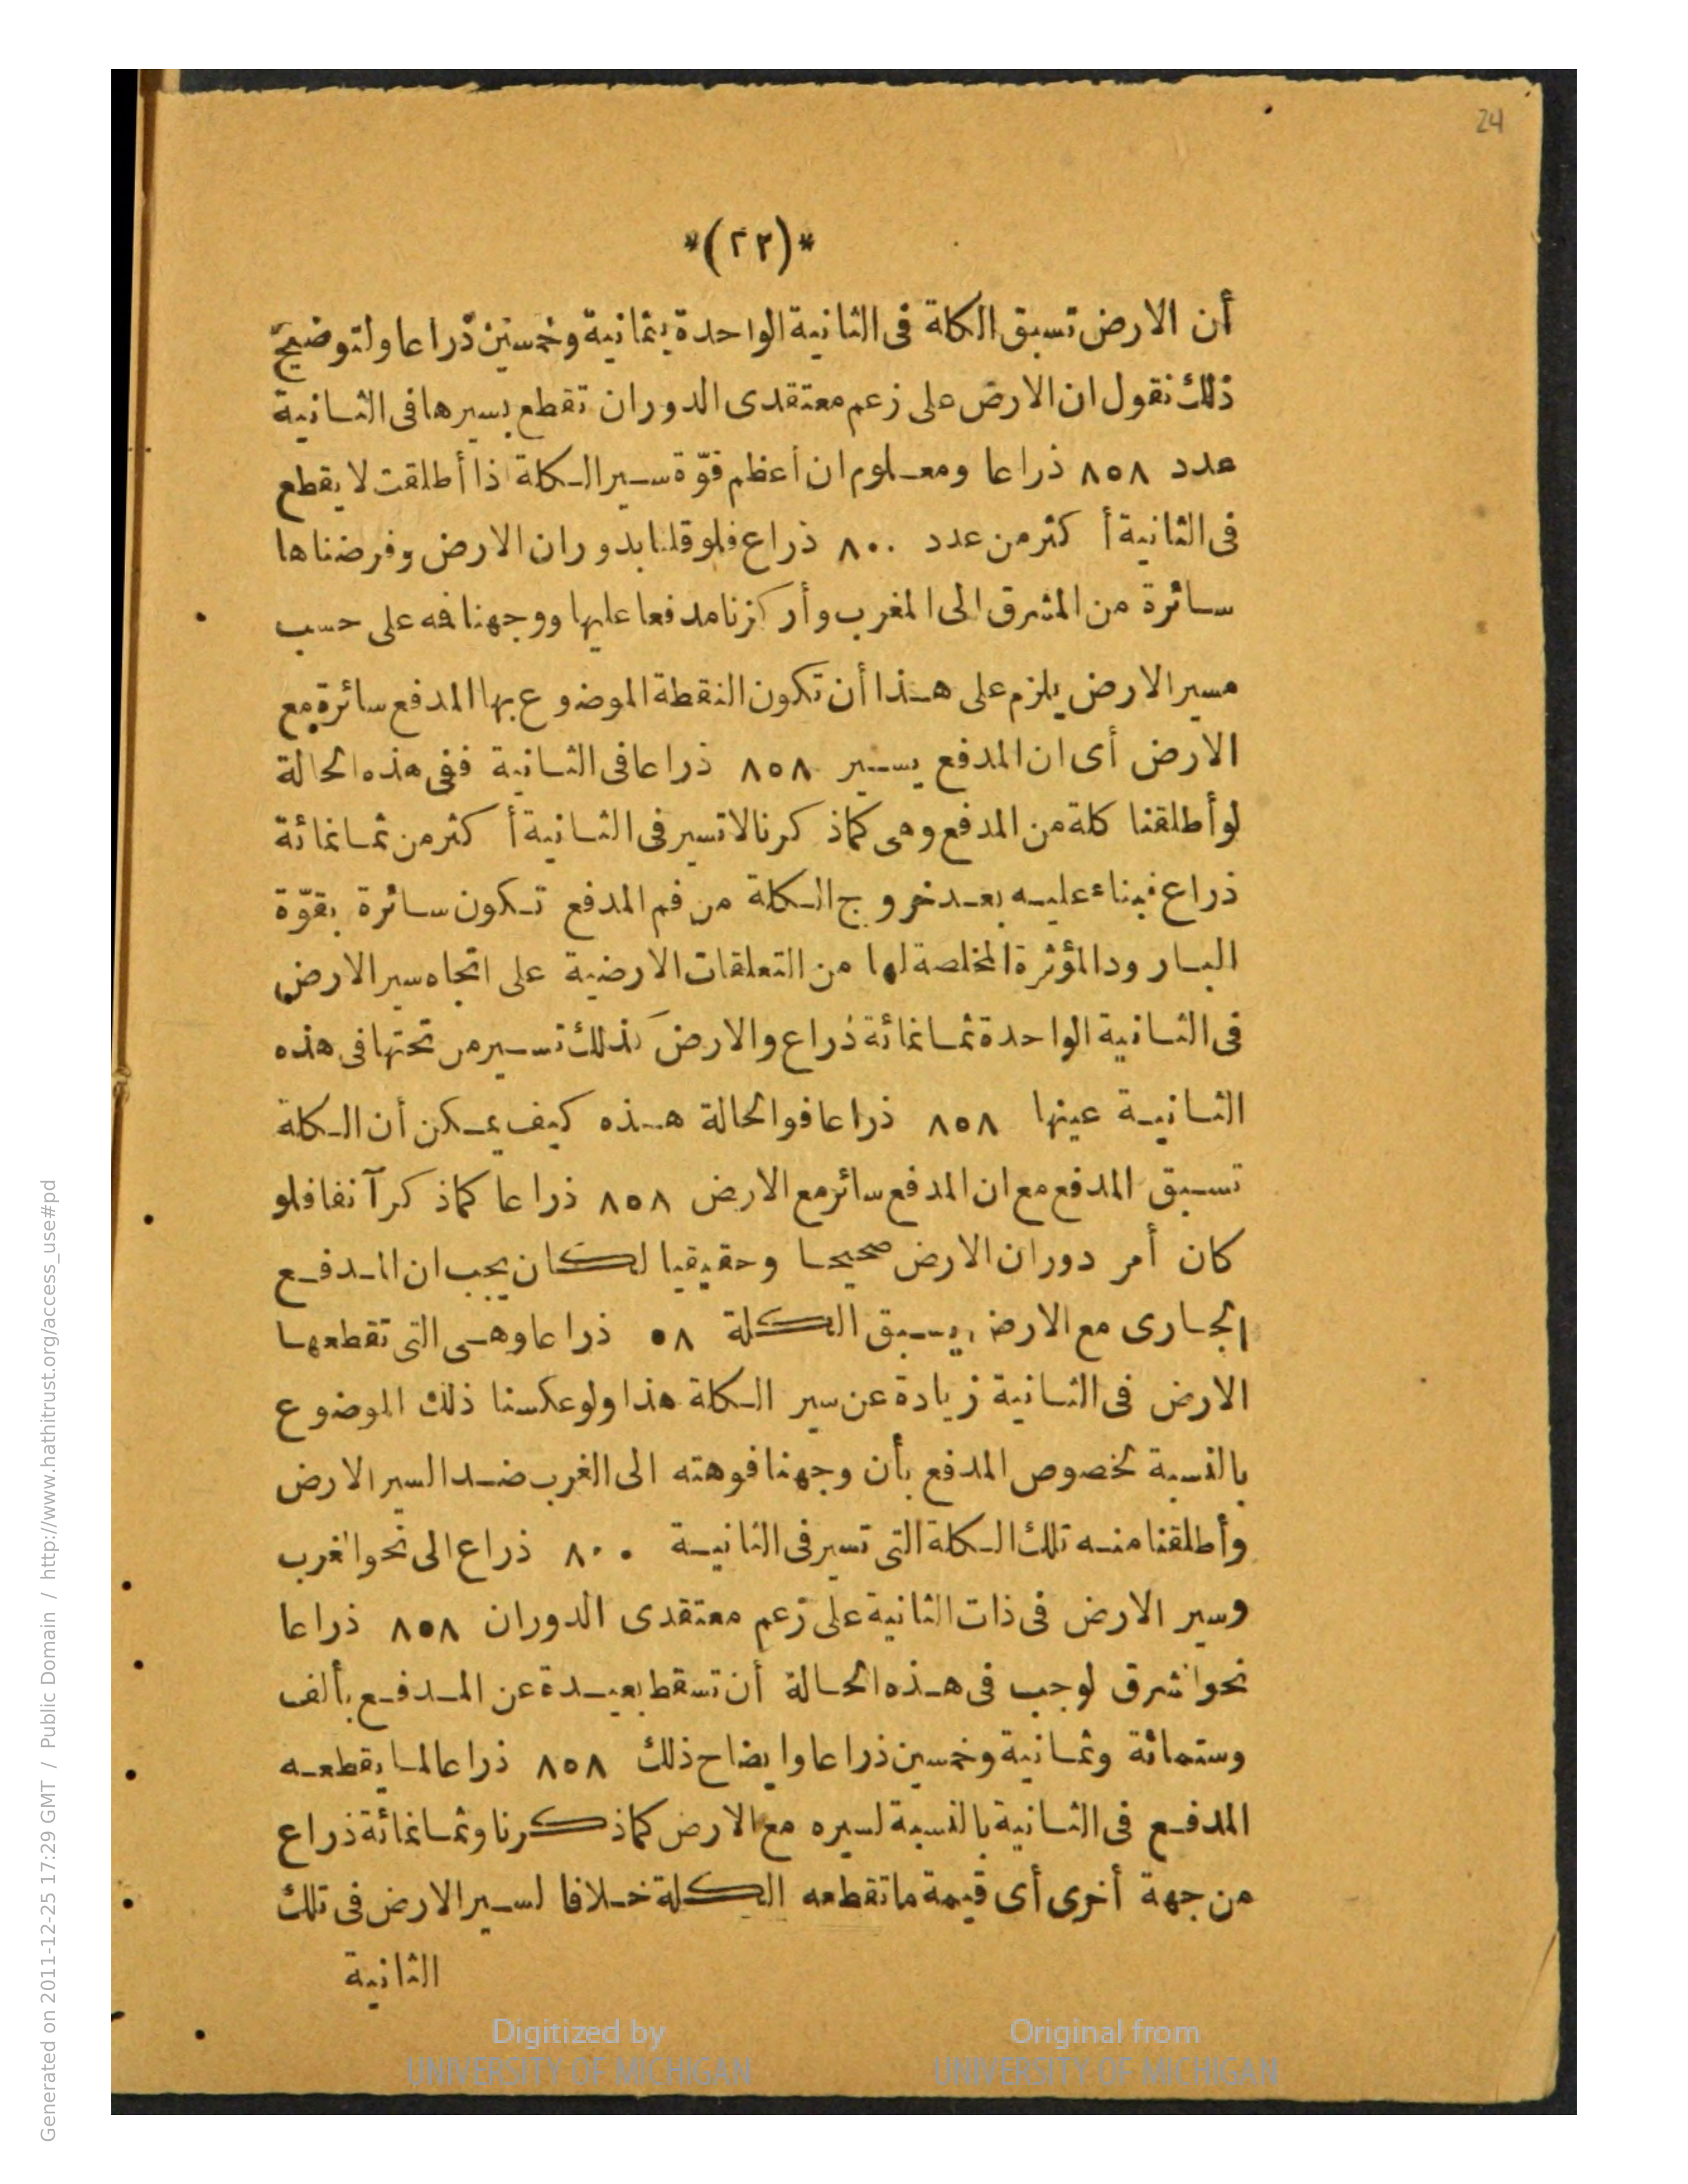 24
*(٢٢)*
أن الارض تسبق الكلة فى الثانية الواحدة بثمانية وخمسين ذراعا ولتوضيح
ذلك نقول ان الارض على زعم معتقدى الدوران تقطع بسيرها فى الثانية
عدد ٨٥٨ ذراعا ومعلوم ان أعظم قوّة سير الكلة اذا أطلقت لا يقطع
فى الثانية أكثر من عدد ٨٠٠ ذراع فلو قلنا بدوران الارض وفرضناها
سائرة من المشرق الى المغرب وأركزنا مدفعا عليها ووجهنا فه على حسب
مسير الارض يلزم على هذا أن تكون النقطة الموضوع بها المدفع سائرة مع
الارض أى ان المدفع يسير ٨٥٨ ذراعا فى الثانية ففى هذه الحالة
لو أطلقنا كلة من المدفع وهى كماذكرنا لاتسير فى الثانية أكثر من ثمانمائة
ذراع فبناء عليه بعد خروج الكلة من فم المدفع تكون سائرة بقوّة
البارود المؤثرة المخلصة لها من التعلقات الارضية على اتجاه سير الارض
فى الثانية الواحدة ثمانمائة ذراع والارض كذلك تسير من تحتها فى هذه
الثانية عينها ٨٥٨ ذراعا فوالحالة هذه كيف يمكن أن الكلة
تسبق المدفع مع ان المدفع سائر مع الارض ٨٥٨ ذراعا كماذكر آنفا فلو
كان أمر دوران الارض صحيحا وحقيقيا لكان يجب ان المدفع
الجارى مع الارض يسبق الكلة ٥٨ ذراعا وهى التى تقطعها
الارض فى الثانية زيادة عن سير الكلة هذا ولو عكسنا ذلك الموضوع
بالنسبة لخصوص المدفع بأن وجهنا فوهته الى الغرب ضد السير الارض
وأطلقنا منه تلك الكلة التى تسير فى الثانية ٨٠٠ ذراع الى نحو الغرب
وسير الارض فى ذات الثانية على زعم معتقدى الدوران ٨٥٨ ذراعا
نحو الشرق لوجب فى هذه الحالة أن تسقط بعيدة عن المدفع بألف
وستمائة وثمانية وخمسين ذراعا وايضاح ذلك ٨٥٨ ذراعا لما يقطعه
المدفع فى الثانية بالنسبة لسيره مع الارض كماذكرنا وثمانمائة ذراع
من جهة أخرى أى قيمة ماتقطعه الكلة خلافا لسير الارض فى تلك
الثانية
Digitized by
UNIVERSITY OF MICHIGAN
Original from
UNIVERSITY OF MICHIGAN
Generated on 2011-12-25 17:29 GMT / Public Domain / http://www.hathitrust.org/access_use#pd